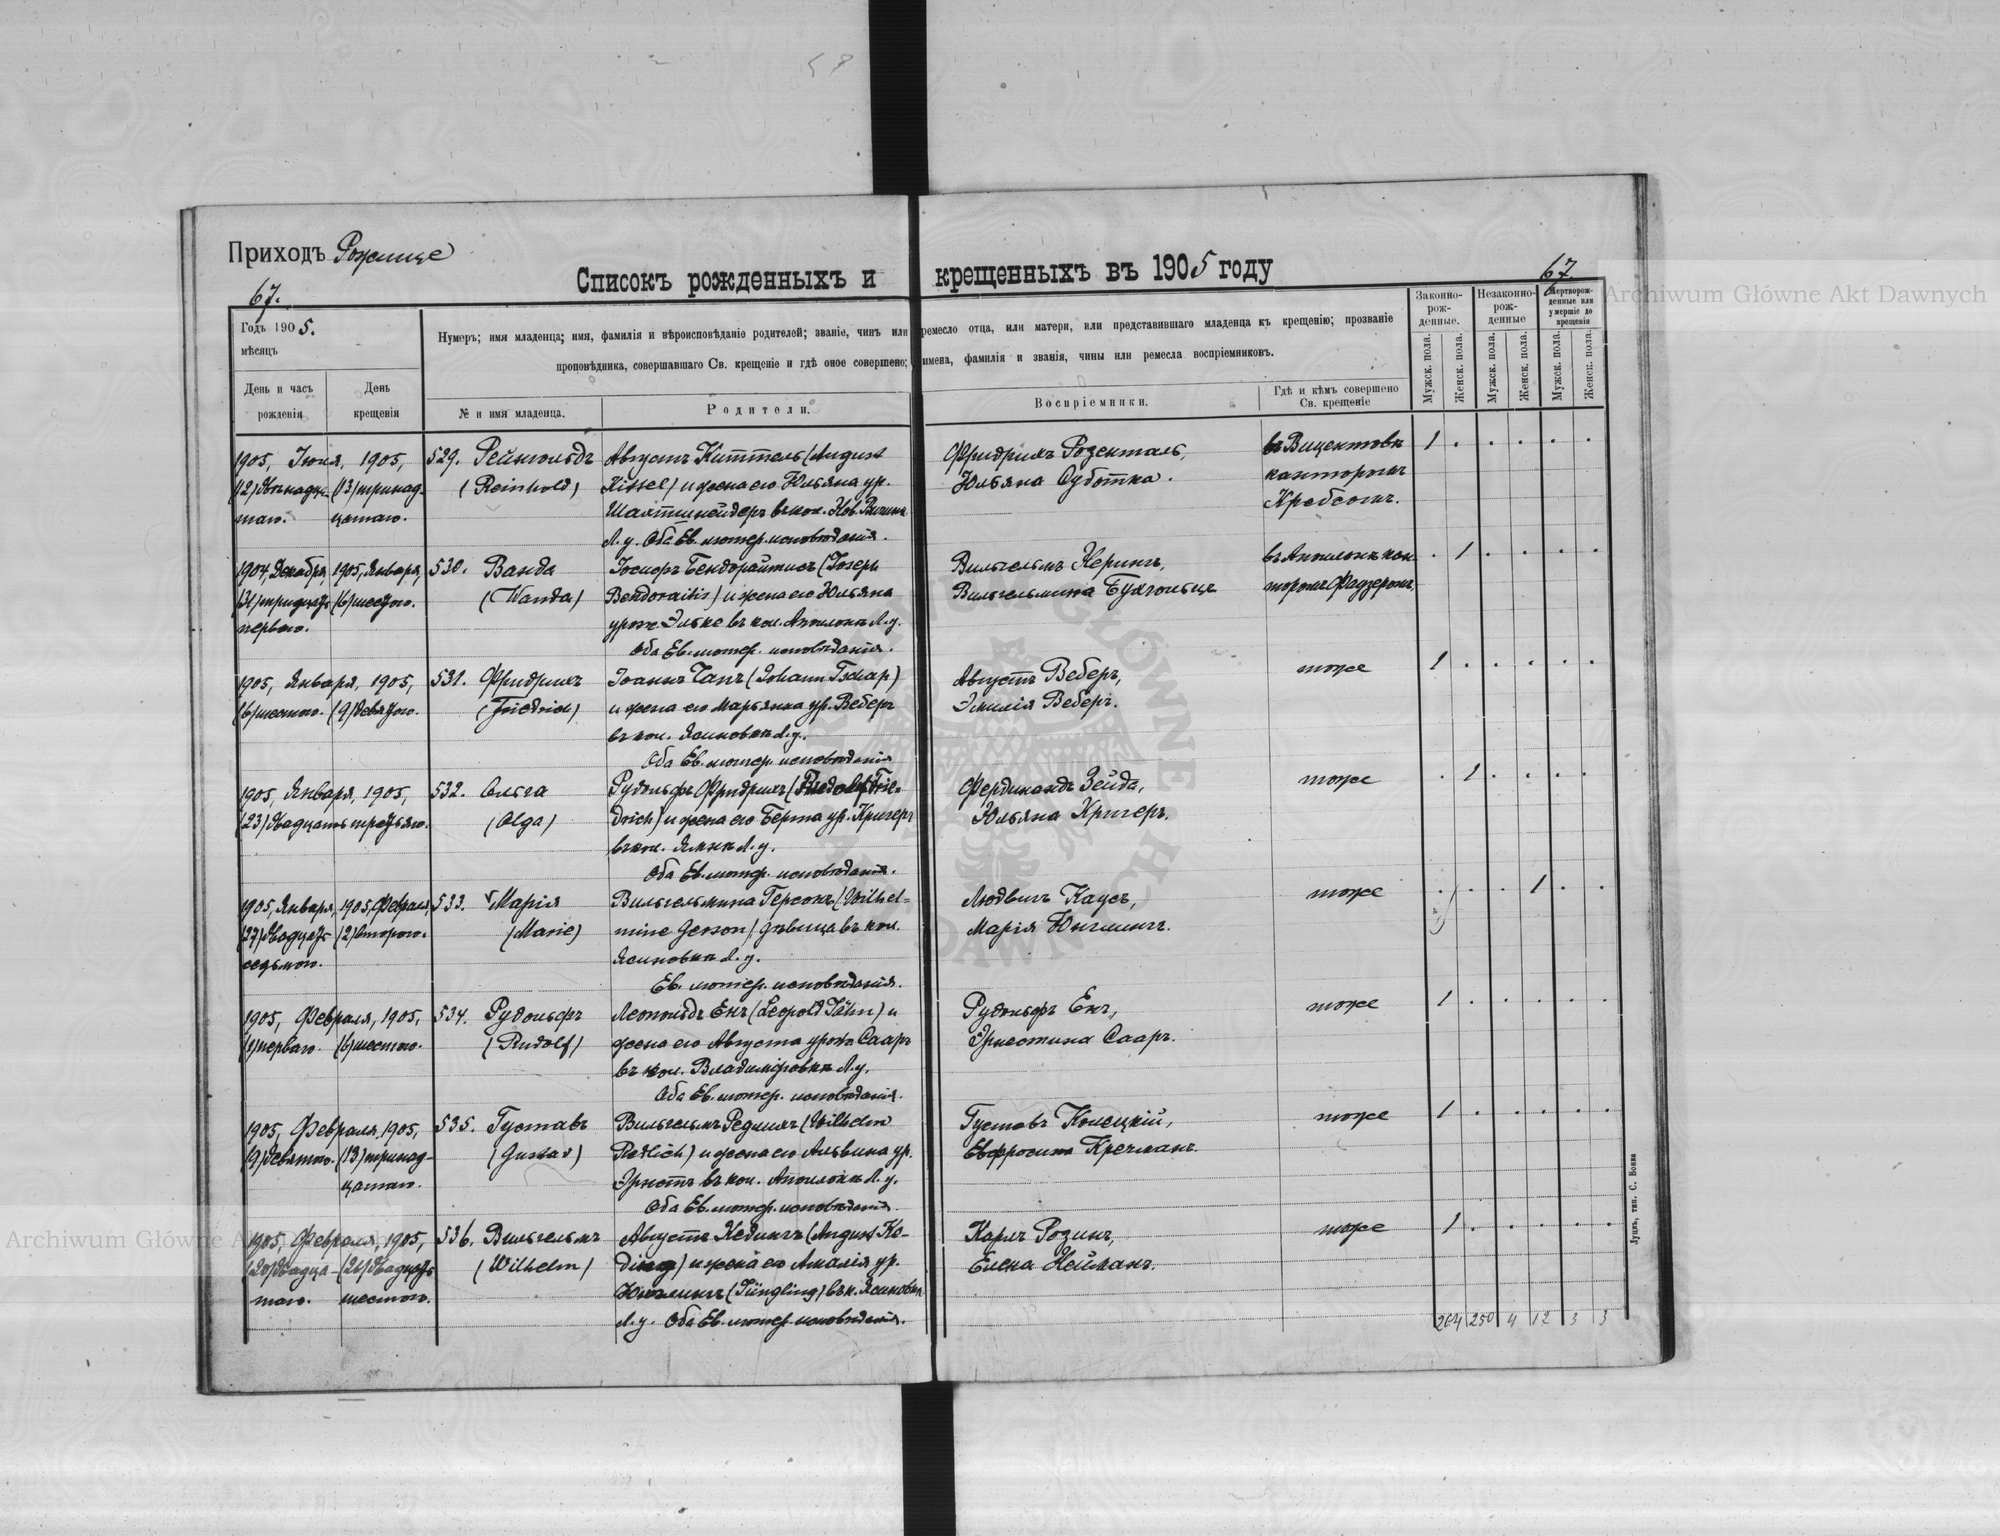 Приходъ Рожище
67.
67.
Списокъ рожденныхъ и крещенныхъ въ 1905 году
Годъ 1905.
мѣсяцъ
День и часъ рожденія
День крещенія
Нумеръ; имя младенца; имя, фамилія и вѣроисповѣданіе родителей; званіе, чинъ или ремесло отца, или матери, или представившаго младенца къ крещенію; прозваніе
проповѣдника, совершавшаго Св. крещеніе и гдѣ оное совершено; имена, фамилія и званія, чины или ремесла воспріемниковъ.
№ и имя младенца.
Родители.
Воспріемники.
Гдѣ и кѣмъ совершено Св. крещеніе
Законно-рож-денные.
Незаконно-рож-денные
Мертворож-денные или умершіе до крещенія
Мужск. пола.
Женск. пола.
Мужск. пола.
Женск. пола.
Мужск. пола.
Женск. пола.
1905, Іюня, 1905, 529. Рейнгольдъ Августъ Киттель (August Фридрихъ Розенталь, въ Вицентовкѣ 1 . . . . .
(12) двѣнадца- (13) тринад- (Reinhold) Kittel) и жена его Юльяна ур. Юльяна Суботка. канторомъ
таго. цатаго. Шахтшнейдеръ въ кол. Нов. Кребсомъ.
Л. у. Оба Ев. лютер. исповѣданія.
1904, Декабря, 1905, Января, 530. Ванда Іосифъ Бендорайтисъ (Josef Вильгельмъ Керинъ, въ Аполонкѣ кан- . 1 . . . .
(31) тридцать (6) шестого. (Wanda) Bendoraitis) и жена его Юльяна Вильгельмина Бухгольцъ торомъ
перваго. урож. Эльке въ кол. Аполонкѣ Л. у.
Оба Ев. лютер. исповѣданія.
1905, Января, 1905, 531. Фридрихъ Іоаннъ Чапъ (Johann Tschap) Августъ Веберъ, тоже 1 . . . . .
(6) шестого. (9) девятого. (Friedrich) и жена его Марьянна ур. Веберъ Эмилія Веберъ.
въ кол. Ясиновкѣ Л. у.
Оба Ев. лютер. исповѣданія
1905, Января, 1905, 532. Ольга Рудольфъ Фридрихъ (Rudolf Frie- Фердинандъ Зейда, тоже . 1 . . . .
(23) двадцать третьяго. (Olga) drich) и жена его Берта ур. Кригеръ Юльяна Кригеръ.
въ кол. Ямкѣ Л. у.
Оба Ев. лютер. исповѣданія.
1905, Января, 1905, Февраля 533. Марія Вильгельмина Герсонъ (Wilhel- Людвигъ Каусъ, тоже . . . 1 . .
(27) двадцать (2) второго. (Marie) mine Gerson) дѣвица въ кол. Марія Юнглингъ.
седьмого. Ясиновкѣ Л. у.
Ев. лютер. исповѣданія.
1905, Февраля, 1905, 534. Рудольфъ Леопольдъ Енъ (Leopold Jähn) и Рудольфъ Енъ, тоже 1 . . . . .
(1) перваго. (6) шестого. (Rudolf) жена его Августа урож. Сааръ Эрнестина Сааръ.
въ кол. Владиміровкѣ Л. у.
Оба Ев. лютер. исповѣданія.
1905, Февраля, 1905, 535. Густавъ Вильгельмъ Редлихъ (Wilhelm Густавъ Конецкій, тоже 1 . . . . .
(9) девятого. (13) тринад- (Gustav) Redlich) и жена его Альвина ур. Евфросина Кречманъ.
цатаго. Эрнстъ въ кол. Аполонкѣ Л. у.
Оба Ев. лютер. исповѣданія.
1905, Февраля, 1905, 536. Вильгельмъ Августъ Кедингъ (August Ke- Карлъ Розинъ, тоже 1 . . . . .
(20) двадца- (26) двадцать (Wilhelm) ding) и жена его Амалія ур. Елена Нейманъ.
таго. шестого. Юнглингъ (Jüngling) въ к. Ясиновкѣ
Л. у. Оба Ев. лютер. исповѣданія.
264 250 4 12 3 3
Луцкъ, тип. С. Бокка
Archiwum Główne Akt Dawnych
Archiwum Główne Akt Dawnych